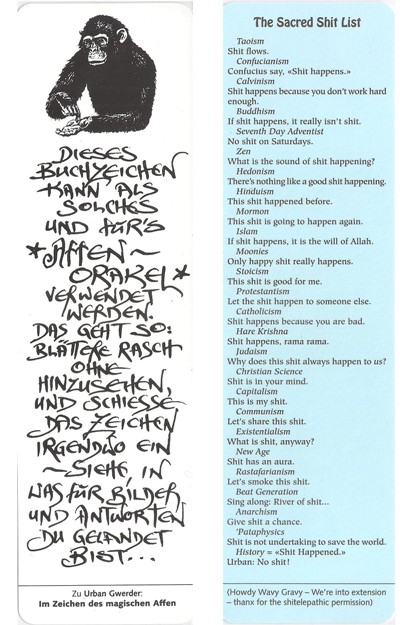 DIESES
BUCHZEICHEN
KANN ALS
SOLCHES
UND FÜR'S
*AFFEN~
ORAKEL*
VERWENDET
WERDEN.
DAS GEHT SO:
BLÄTTERE RASCH
OHNE
HINZUSEHEN,
UND SCHIESSE
DAS ZEICHEN
IRGENDWO EIN
~SIEHE, IN
WAS FÜR BILDER
UND ANTWORTEN
DU GELANDET
BIST...
Zu Urban Gwerder:
Im Zeichen des magischen Affen
The Sacred Shit List
Taoism
Shit flows.
Confucianism
Confucius say, «Shit happens.»
Calvinism
Shit happens because you don't work hard
enough.
Buddhism
If shit happens, it really isn't shit.
Seventh Day Adventist
No shit on Saturdays.
Zen
What is the sound of shit happening?
Hedonism
There's nothing like a good shit happening.
Hinduism
This shit happened before.
Mormon
This shit is going to happen again.
Islam
If shit happens, it is the will of Allah.
Moonies
Only happy shit really happens.
Stoicism
This shit is good for me.
Protestantism
Let the shit happen to someone else.
Catholicism
Shit happens because you are bad.
Hare Krishna
Shit happens, rama rama.
Judaism
Why does this shit always happen to us?
Christian Science
Shit is in your mind.
Capitalism
This is my shit.
Communism
Let's share this shit.
Existentialism
What is shit, anyway?
New Age
Shit has an aura.
Rastafarianism
Let's smoke this shit.
Beat Generation
Sing along: River of shit...
Anarchism
Give shit a chance.
'Pataphysics
Shit is not undertaking to save the world.
History = «Shit Happened.»
Urban: No shit!
(Howdy Wavy Gravy – We're into extension
– thanx for the shitelepathic permission)